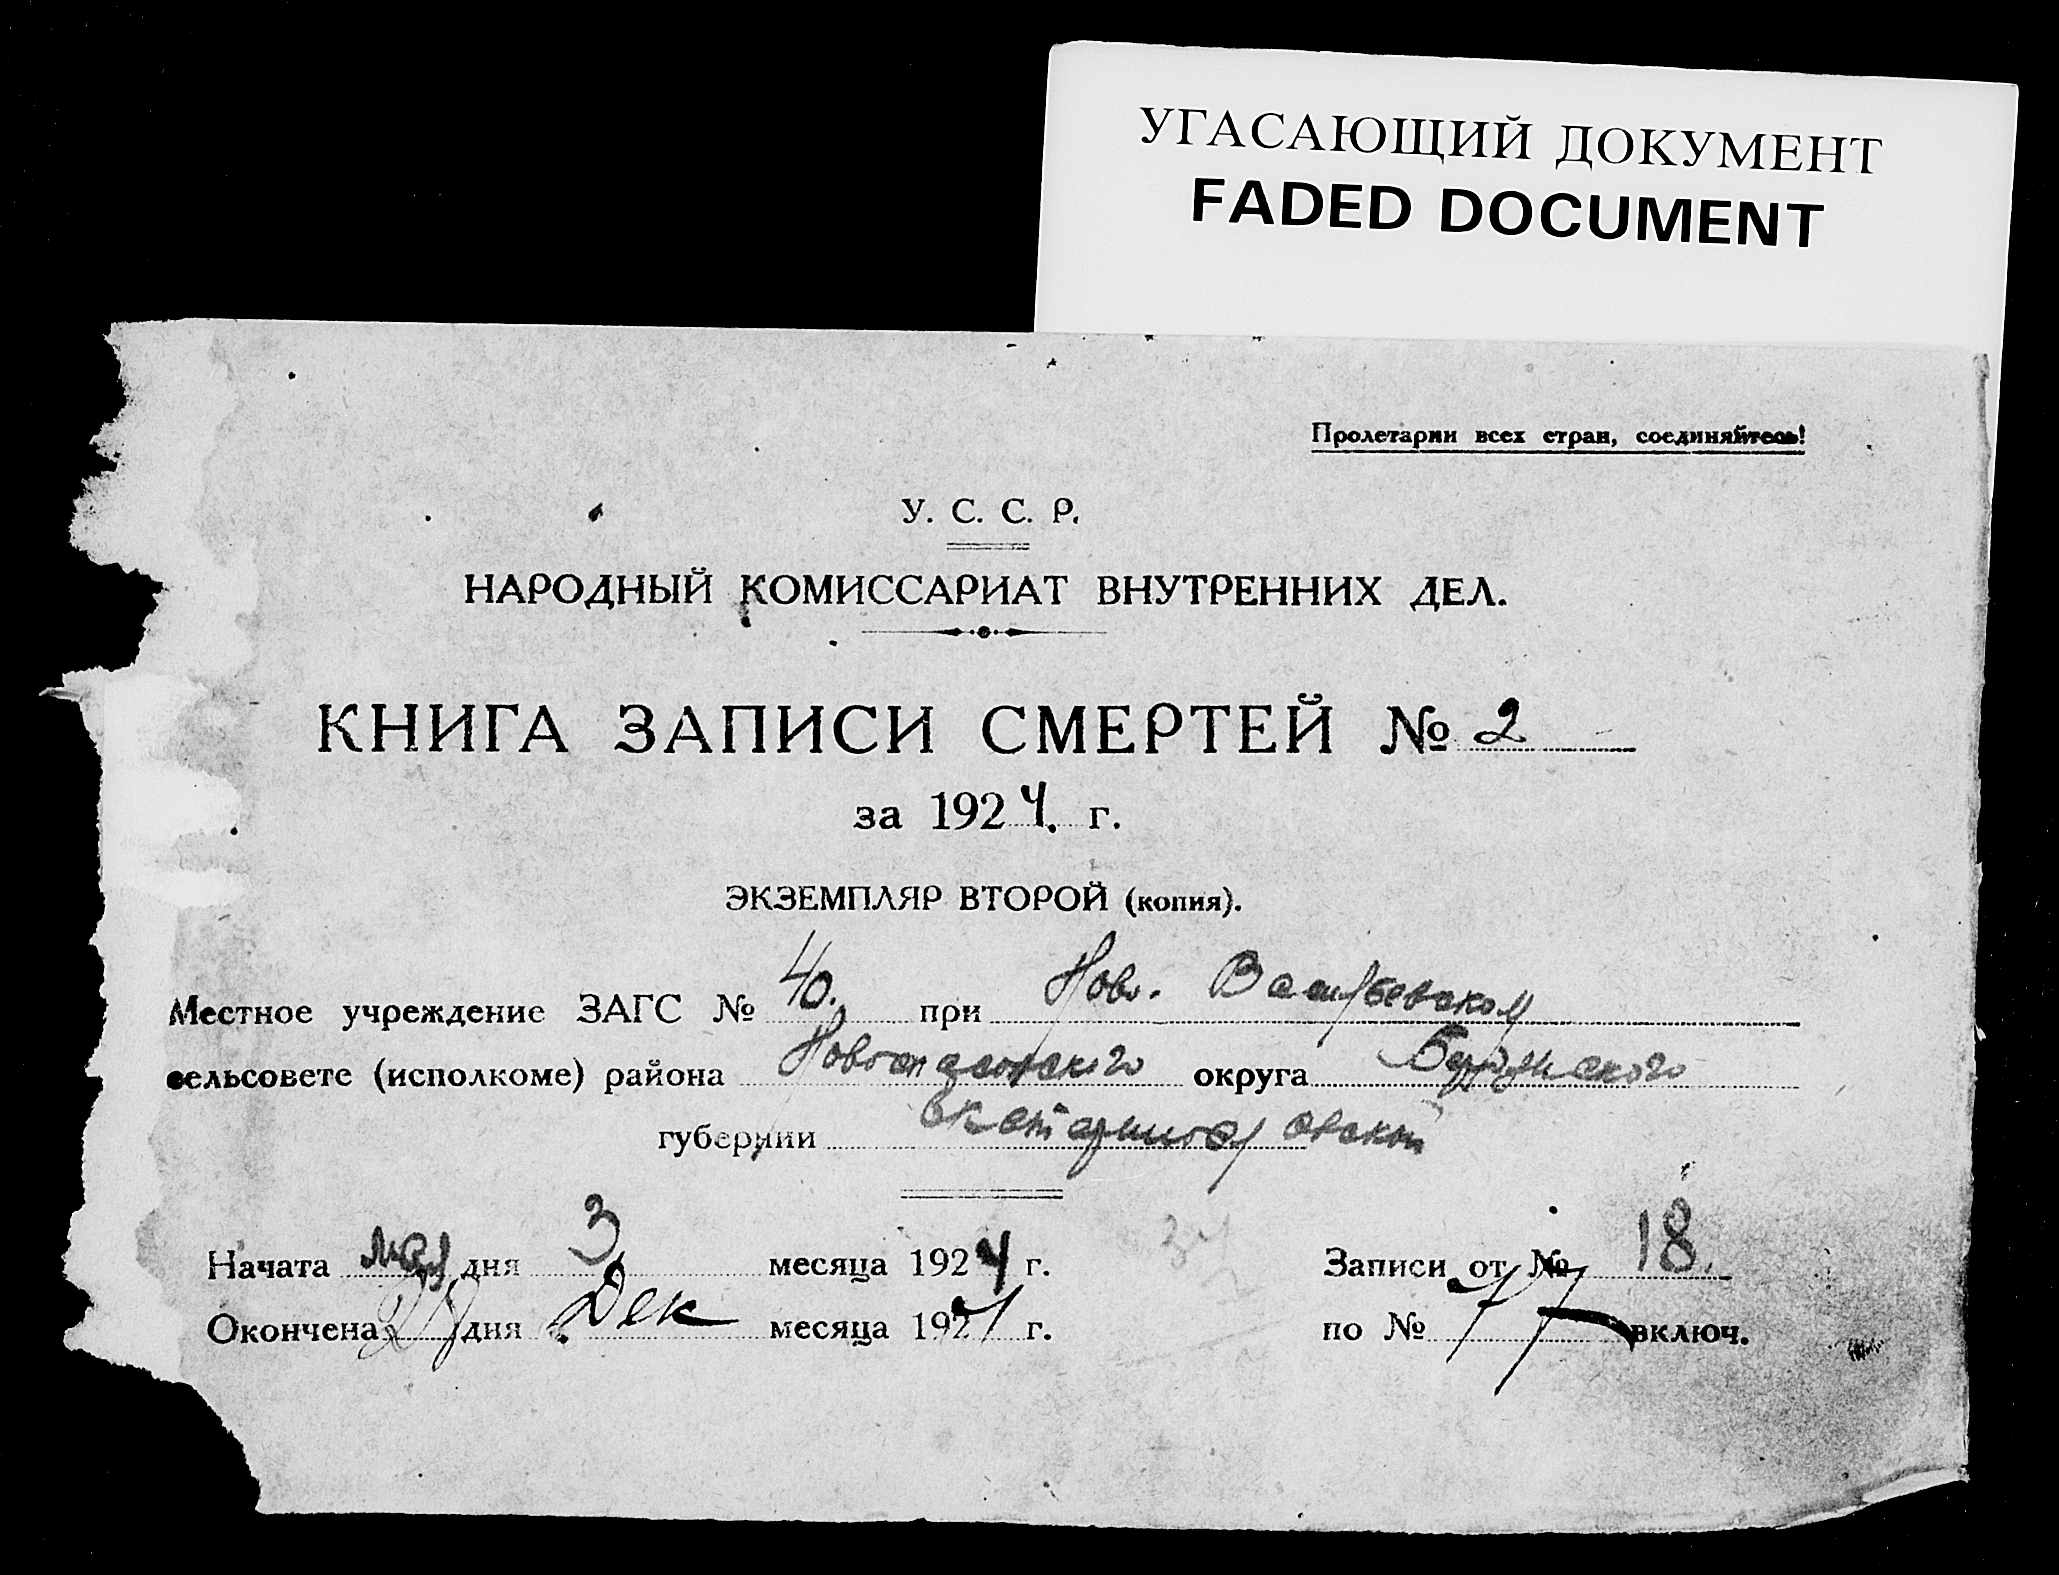 УГАСАЮЩИЙ ДОКУМЕНТ
FADED DOCUMENT
Пролетарии всех стран, соединяйтесь!
У. С. С. Р.
НАРОДНЫЙ КОМИССАРИАТ ВНУТРЕННИХ ДЕЛ.
КНИГА ЗАПИСИ СМЕРТЕЙ № 2
за 1924. г.
ЭКЗЕМПЛЯР ВТОРОЙ (копия).
Местное учреждение ЗАГС № 40. при Ново. Васильевском
сельсовете (исполкоме) района Новоспасовского округа Бердянского
губернии Екатеринославской
Начата мая дня 3 месяца 1924 г. Записи от № 18.
Окончена дня Дек месяца 1924 г. по № 77 включ.